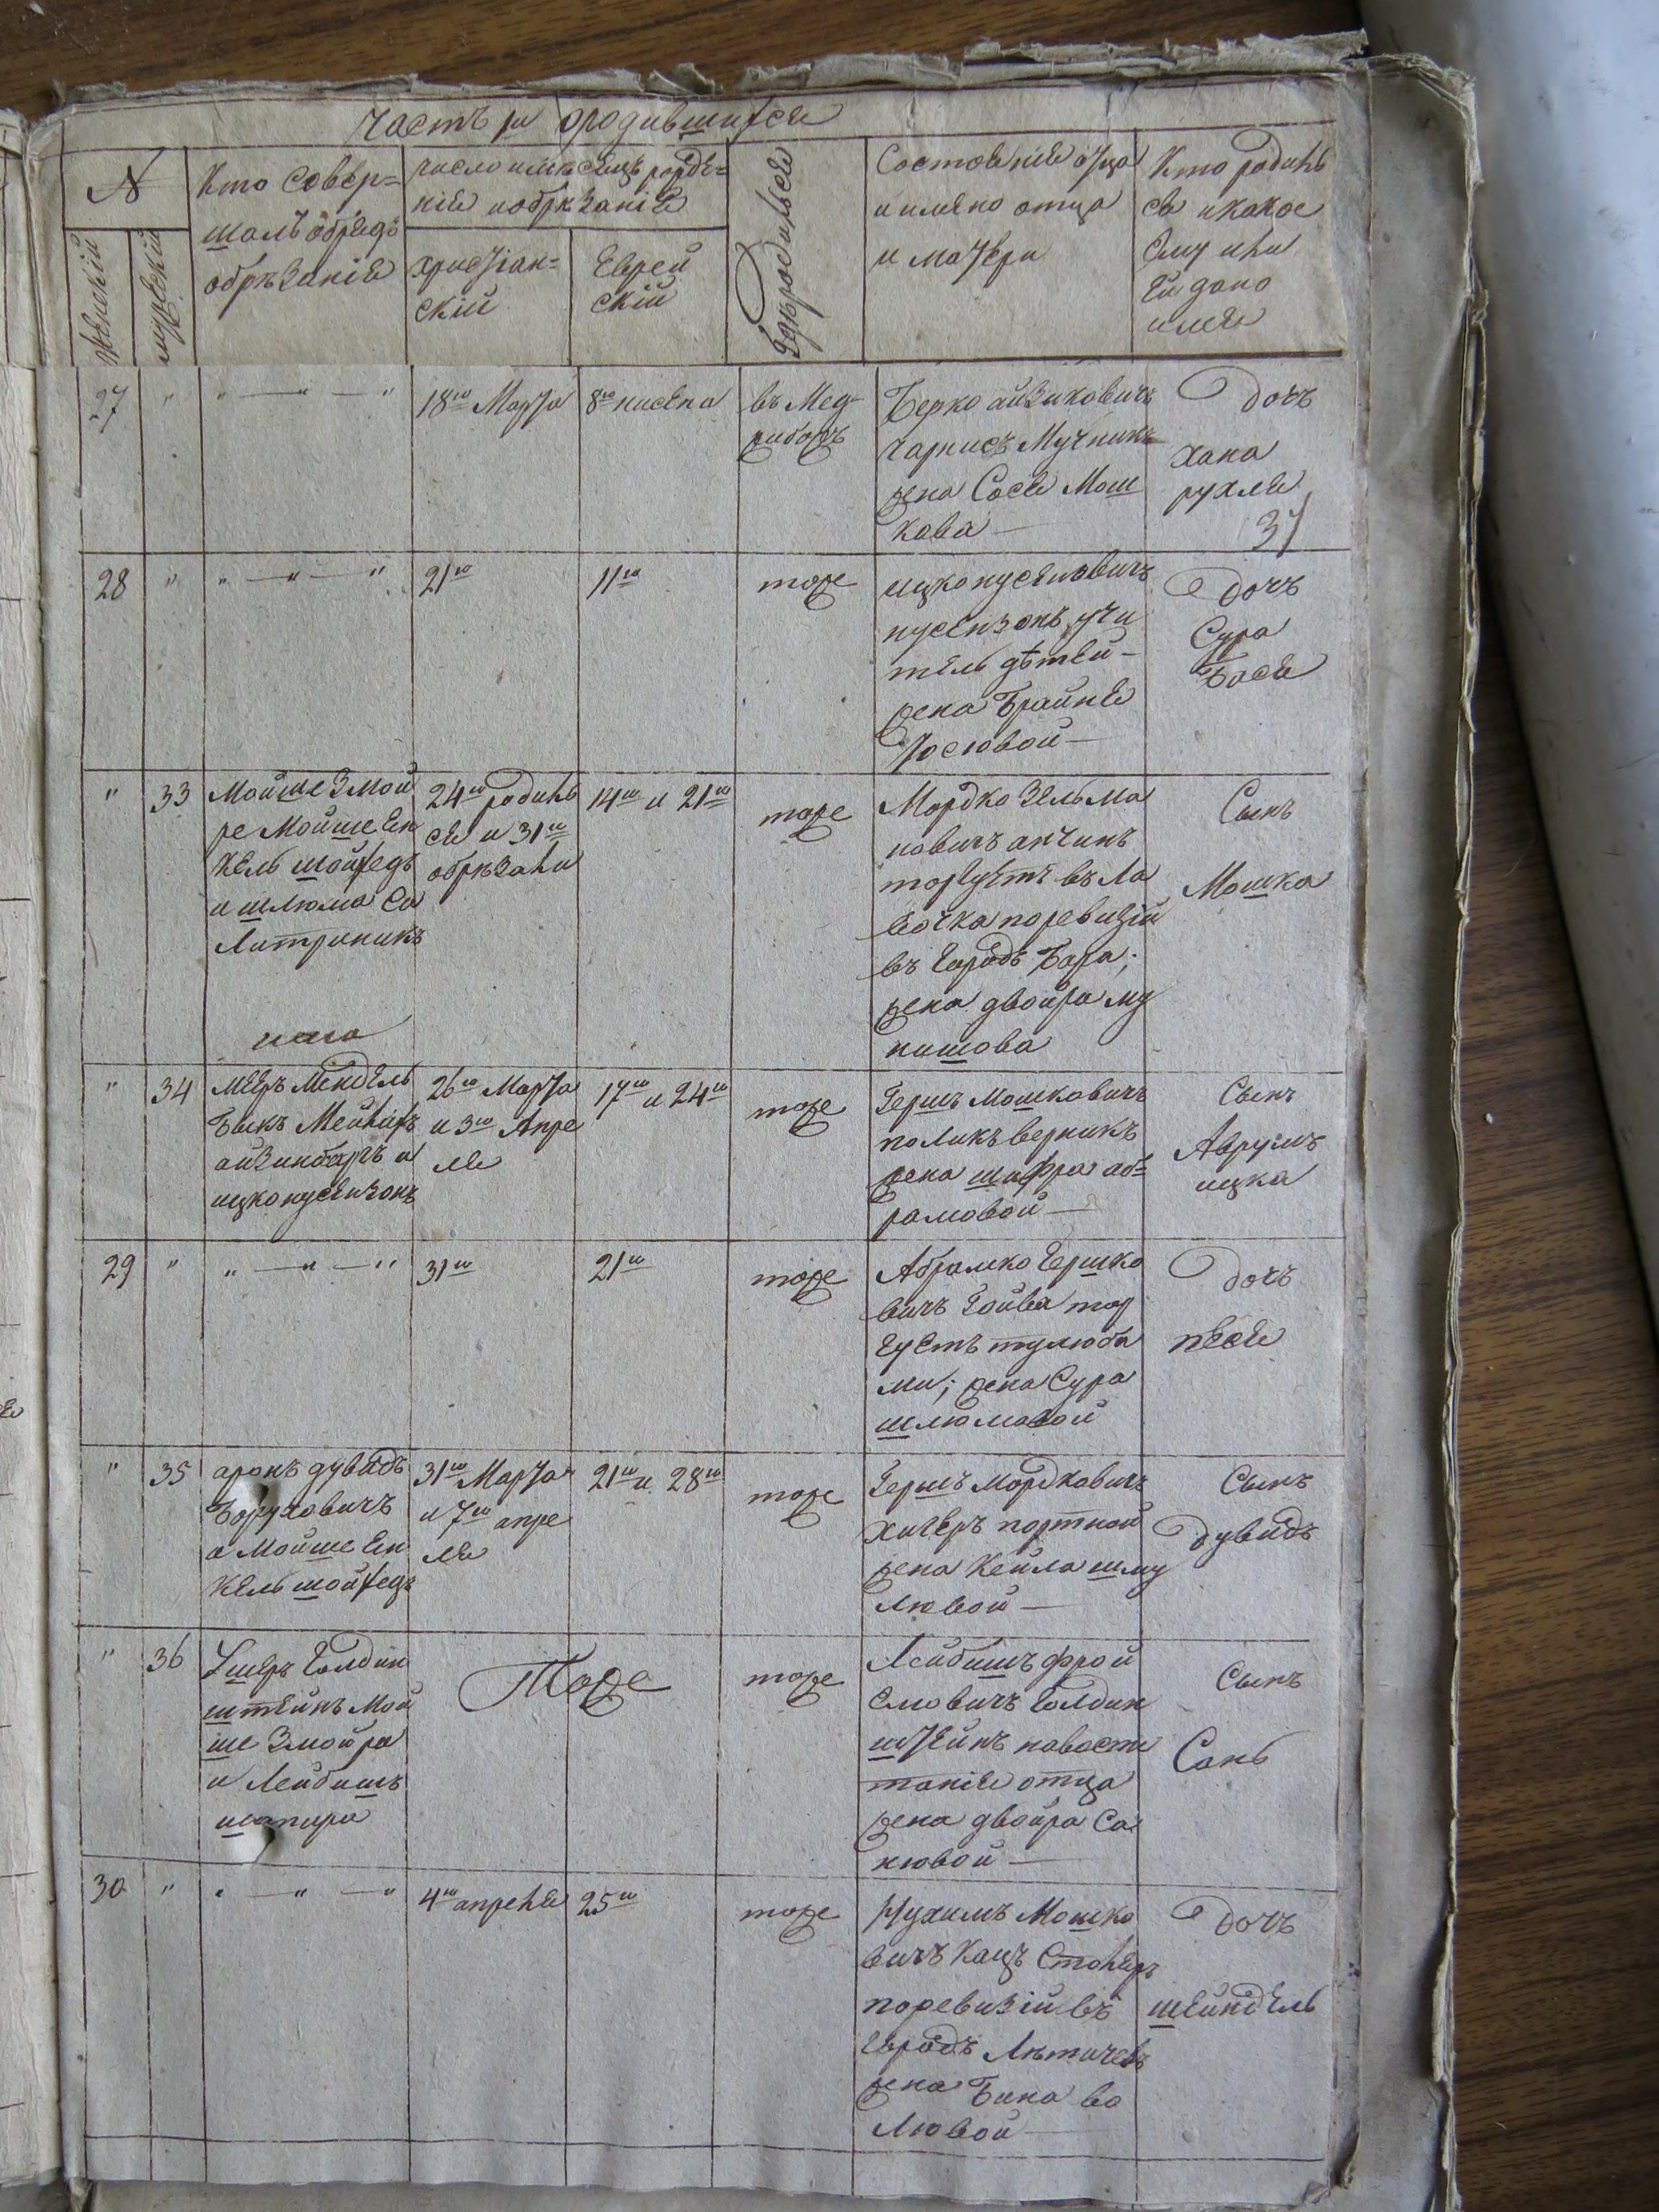 Часть 1я ородившихся
№
Кто совер=
шалъ обрядъ
обрѣзанія
число имѣсяцъ рожде=
нія иобрѣзанія
Состояніе отца
и имяно отца
и матери
Кто родилъ
ся икакое
ему или
ей дано
имя
женскій
мужескій
Христіан=
скій
Еврей
скій
Гдѣ родился
27 " " — " — " 18го Марта 8го нисена въ Мед
жибожъ
Берко айзиковичъ
чарнисъ Мучникъ
жена Сося Мош
кова —
Дочь
хана
рухля
37
28 " " — " — " 21го 11го тоже
ицко нусеновичъ
нусензонъ учи
тель дѣтей —
жена Брайня
Іосіовой —
Дочь
Сура
Бася
" 33 Мойше Змой
ре Мойше Ен
кель шойхедъ
и шлюма Са
литрникъ
24го родилъ
ся и 31го
обрѣзали
14го и 21го
тоже
Мордко Зельма
новичъ анчинъ
торгуетъ въ ла
вочка поревизіи
въ городѣ Бара;
жена двойра му
нишова
Сынъ
Мошка
" 34 Мееръ Мендель
Быкъ Мейлихъ
айзинбаргъ и
ицко нусензонъ
26го Марта
и 3го Апре
ля
17го и 24го
тоже
Гершъ Мошковичъ
поликъ верникъ
жена шифра аб=
рамовой —
Сынъ
Аврумъ
ицка
29 " " — " — " 31го 21го тоже
Абрамко Гершко
вичъ Гойва тор
гуетъ тулюба
ми; жена Сура
шлюмовой
Дочь
песя
" 35 аронъ дувидъ
Боруховичъ
а Мойше Ен
кель шойхедъ
31го Марта
и 7го апре
ля
21го и 28го
тоже
Гершъ Мордковичъ
хигеръ портной
жена Кейла шму
лювой —
Сынъ
Дувидъ
" 36 Ушеръ Голдин
штейнъ Мой
ше Змойра
и Лейбишъ
шапира
Тоже
тоже
Лейбишъ фрой
емовичъ Голдин
штейнъ навоспи
таніе отца
жена двойра Са
нювой —
Сынъ
Сань
30 " " — " — " 4го апреля 25го тоже
Нухимъ Мошко
вичъ Кацъ Столяръ
поревизіи въ
городѣ Лѣтичевѣ
жена Бина во
лювой —
Дочь
шейндель